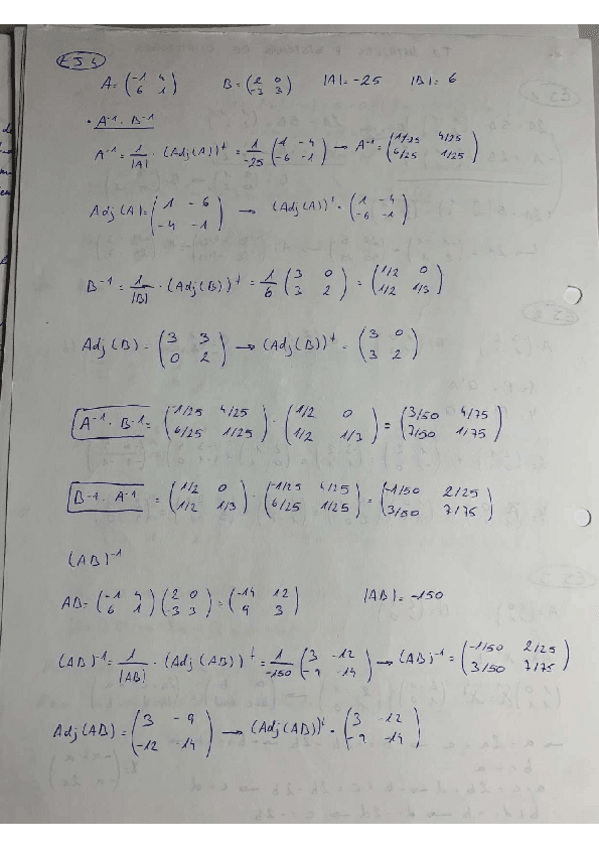 EJ 4
A = (-1 4 / 6 1)   B = (2 0 / -3 3)   |A| = -25   |B| = 6
· A⁻¹ · B⁻¹
A⁻¹ = 1/|A| · (Adj(A))ᵗ = 1/-25 (1 -4 / -6 -1) → A⁻¹ = (-1/25 4/25 / 6/25 1/25)
Adj(A) = (1 -6 / -4 -1) → (Adj(A))ᵗ = (1 -4 / -6 -1)
B⁻¹ = 1/|B| · (Adj(B))ᵗ = 1/6 (3 0 / 3 2) = (1/2 0 / 1/2 1/3)
Adj(B) = (3 3 / 0 2) → (Adj(B))ᵗ = (3 0 / 3 2)
A⁻¹ · B⁻¹ = (-1/25 4/25 / 6/25 1/25) · (1/2 0 / 1/2 1/3) = (3/50 4/75 / 7/50 1/75)
B⁻¹ · A⁻¹ = (1/2 0 / 1/2 1/3) · (-1/25 4/25 / 6/25 1/25) = (-1/50 2/25 / 3/50 7/75)
(AB)⁻¹
AB = (-1 4 / 6 1) (2 0 / -3 3) = (-14 12 / 9 3)   |AB| = -150
(AB)⁻¹ = 1/|AB| · (Adj(AB))ᵗ = 1/-150 (3 -12 / -9 -14) → (AB)⁻¹ = (-1/50 2/25 / 3/50 7/75)
Adj(AB) = (3 -9 / -12 -14) → (Adj(AB))ᵗ = (3 -12 / -9 -14)